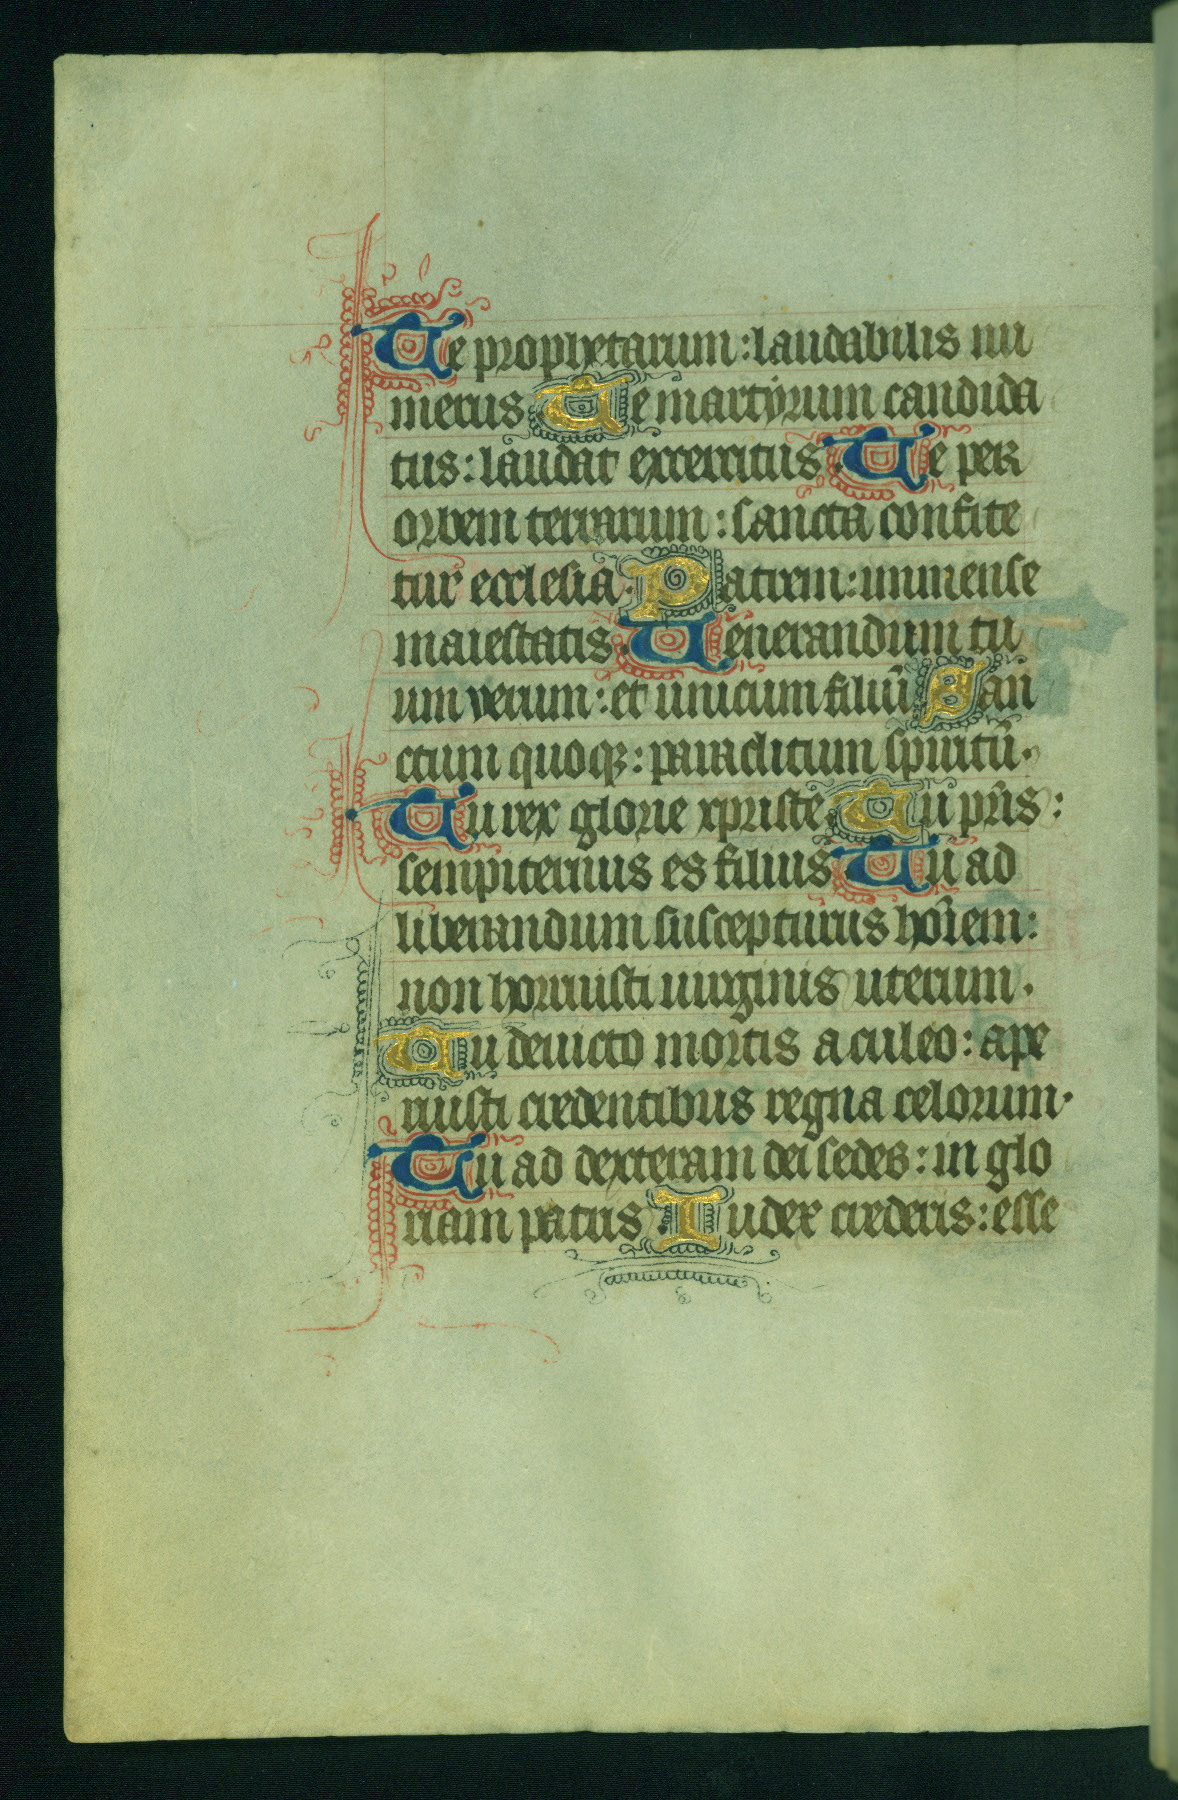 Te prophetarum: laudabilis nu
merus Te martyrum candida
tus: laudat exercitus. Te per
orbem terrarum: sancta confite
tur ecclesia. Patrem: immense
maiestatis. Uenerandum tu
um verum: et unicum filiū San
ctum quoqꝫ: paraclitum spiritū.
Tu rex glorie xpriste. Tu pr̄is:
sempiternus es filius Tu ad
liberandum suscepturus hoīem:
non horruisti uirginis uterum.
Tu deuicto mortis aculeo: ape
ruisti credentibus regna celorum.
Tu ad dexteram dei sedes: in glo
riam patris. Iudex crederis: esse